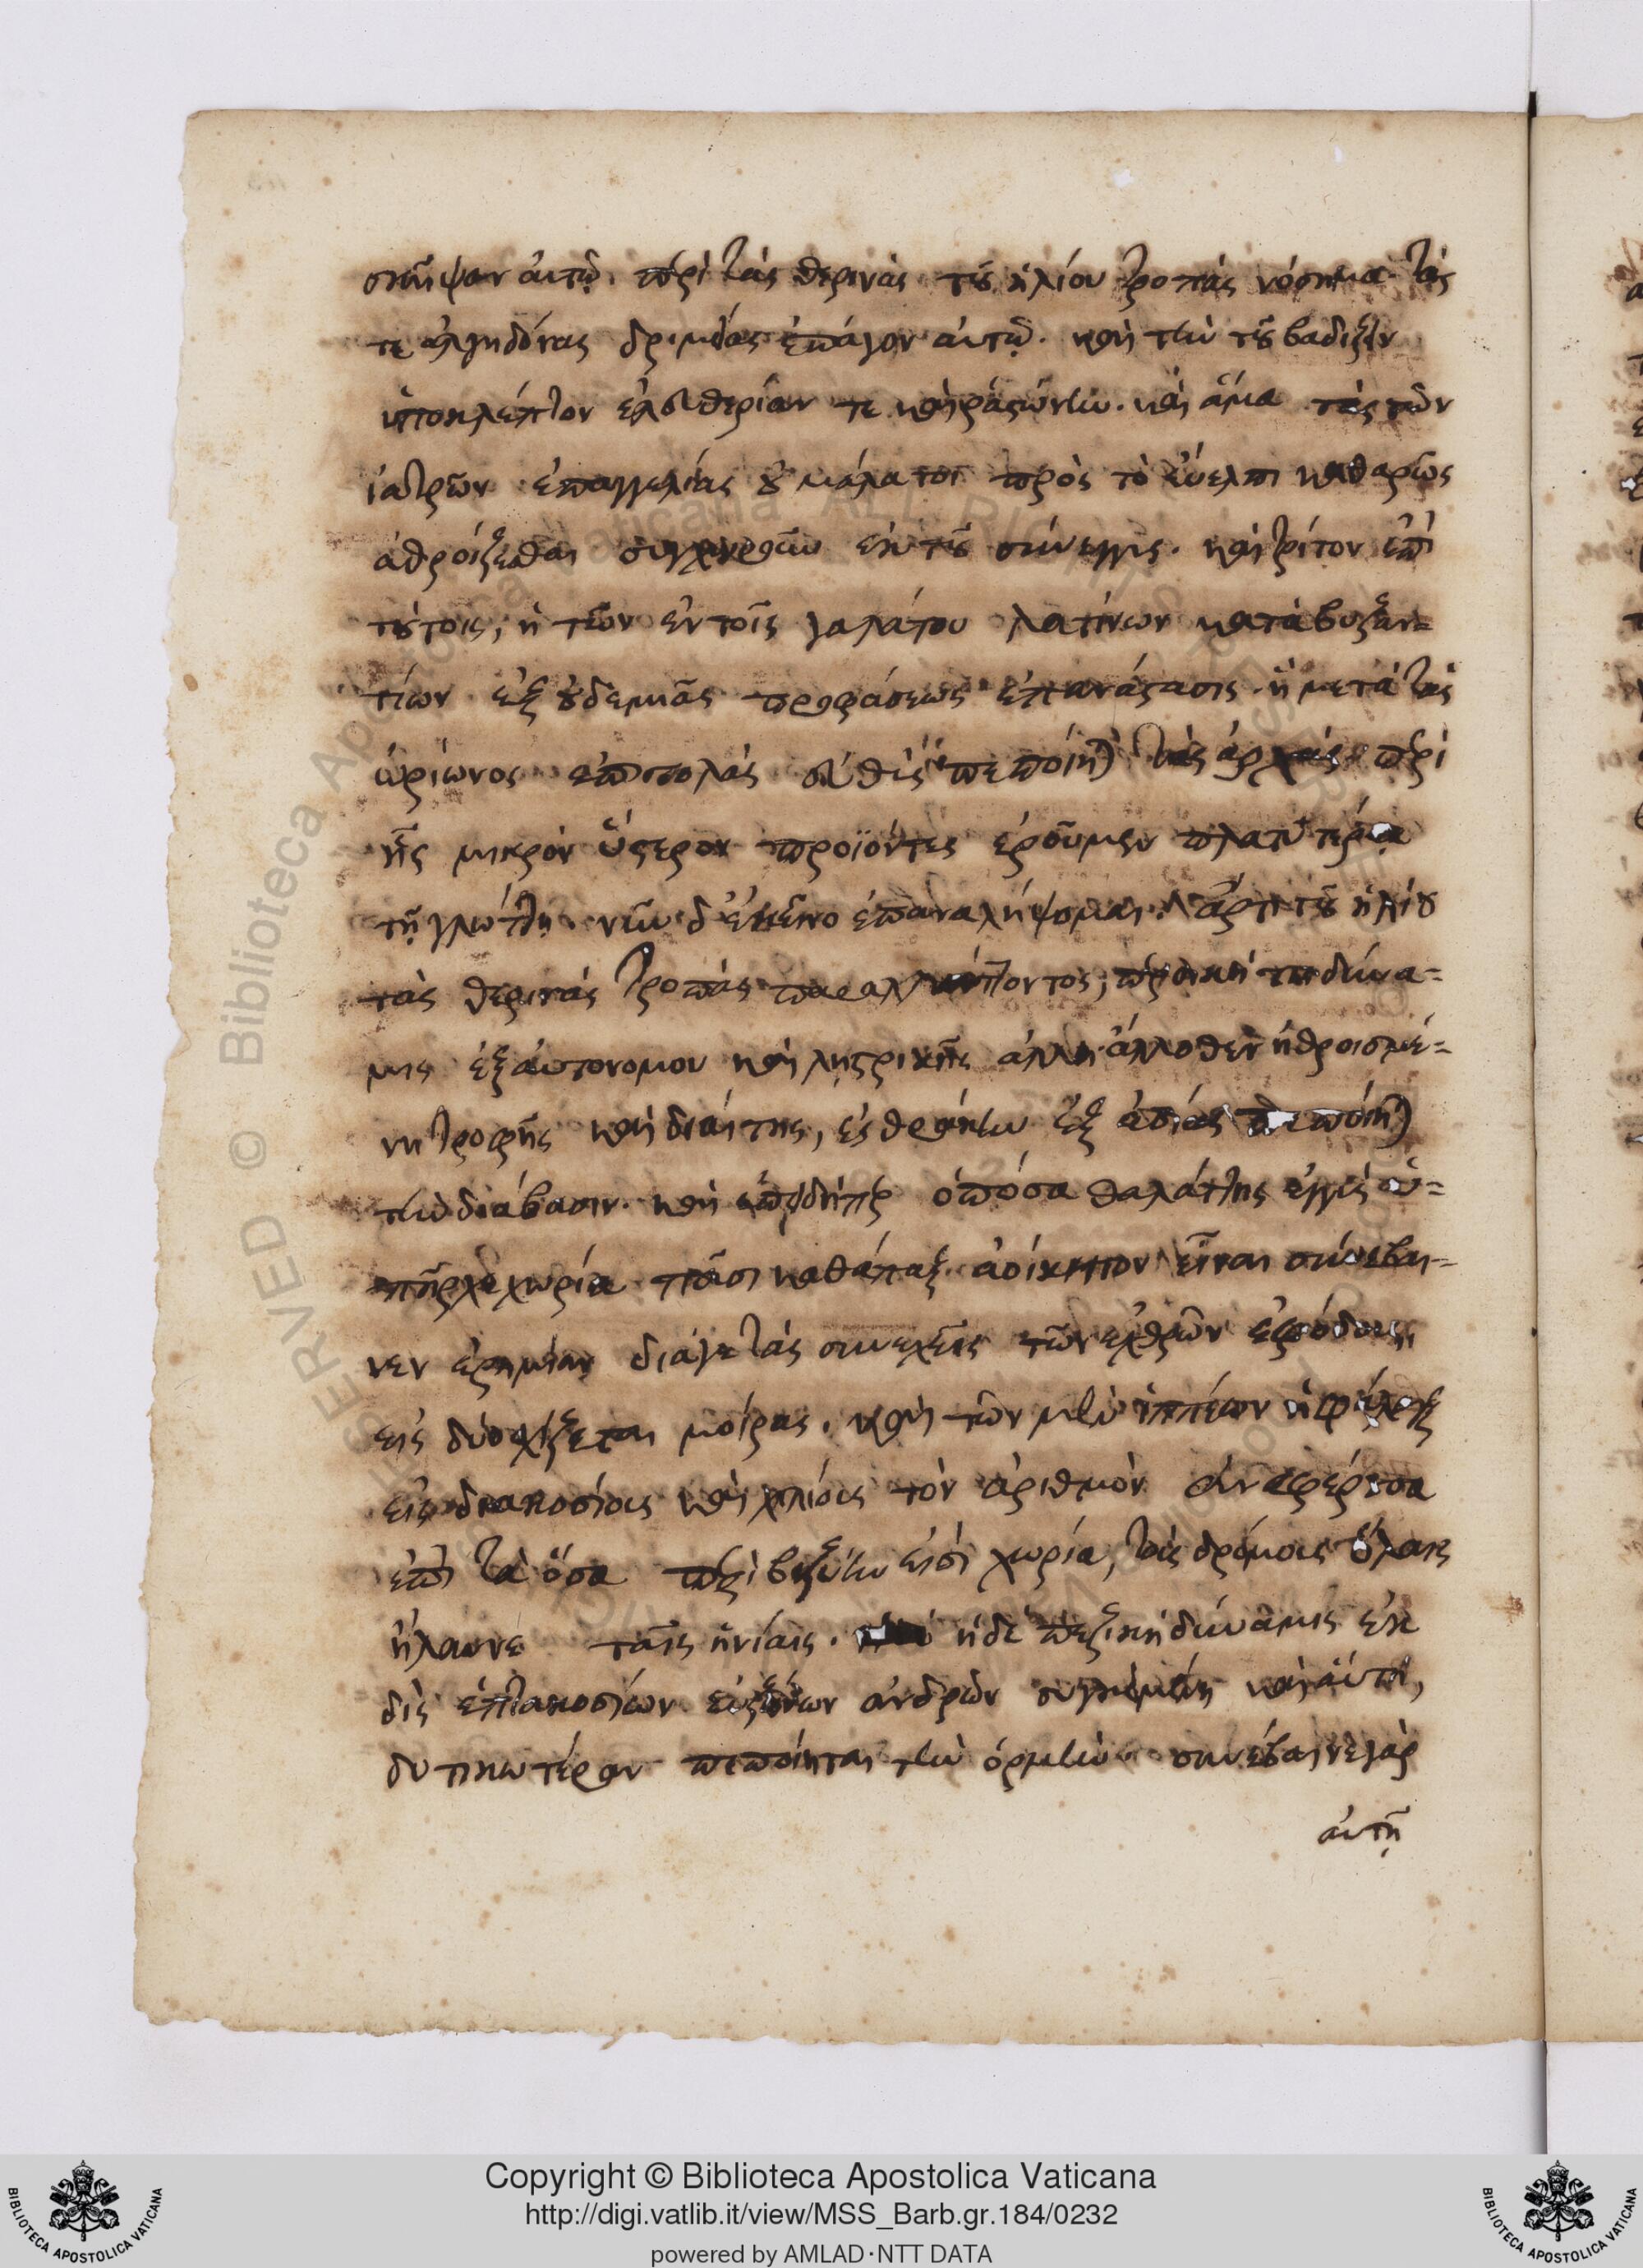 σκῆψαν αὐτῷ. περὶ τὰς θερινὰς τοῦ ἡλίου τροπὰς νόσημα τάς
τε ἀλγηδόνας δριμείας ἐπάγον αὐτῷ. καὶ τὴν τοῦ βαδίζειν
ὑποκλέπτον ἐλευθερίαν τε καὶ ῥαστώνην. καὶ ἅμα τὰς τῶν
ἰατρῶν ἐπαγγελίας οὐ μάλα τοι πρὸς τὸ εὔελπι καθαρῶς
ἀθροίζεσθαι συγχωροῦν ἐκ τοῦ σύνεγγυς. καὶ τρίτον ἐπὶ
τούτοις, ἡ τῶν ἐν τοῖς γαλάτου λατίνων κατὰ βυζαν=
τίων ἐξ οὐδεμιᾶς προφάσεως ἐπανάστασις. ἣ μετὰ τὰς
ὠρίωνος ἐπιτολὰς εὐθὺς πεποίηται τὰς ἀρχάς. περὶ
ἧς μικρὸν ὕστερον προϊόντες ἐροῦμεν πλατυτέρᾳ
τῇ γλώττῃ. νῦν δ' ἐκεῖνο ἐπαναλήψομαι. ἄρτι τοῦ ἡλίου
τὰς θερινὰς τροπὰς παραλλάττοντος, περσική τις δύνα=
μις ἐξ αὐτονόμου καὶ λῃστρικῆς ἄλλη ἄλλοθεν ἠθροισμέ=
νη τροφῆς καὶ διαίτης, ἐς θρᾴκην ἐξ ἀσίας πεποίηται
τὴν διάβασιν. καὶ ἐπειδήπερ ὁπόσα θαλάττης ἐγγὺς ὑ=
πῆρχε χωρία πᾶσι καθάπαξ ἀοίκητον εἶναι συνέβαι=
νεν ἐρημίαν διά γε τὰς συνεχεῖς τῶν ἐχθρῶν ἐφόδους,
εἰς δύο σχίζεται μοίρας. καὶ τῶν μὲν ἱππέων ἡ φάλαγξ
εἰς διακοσίους καὶ χιλίους τὸν ἀριθμὸν ἀναφέρουσα
ἐπὶ τὰ ὅσα περὶ βιζύην εἰσὶ χωρία, τοὺς δρόμους ὅλαις
ἤλαυνε ταῖς ἡνίαις. ἡ δὲ πεζικὴ δύναμις ἐκ
δὶς ἑπτακοσίων εὐζώνων ἀνδρῶν συγκειμένη καὶ αὐτή,
δυτικωτέραν πεποίηται τὴν ὁρμὴν. συνέβαινε γὰρ
αὐτῇ
Copyright © Biblioteca Apostolica Vaticana
http://digi.vatlib.it/view/MSS_Barb.gr.184/0232
powered by AMLAD·NTT DATA